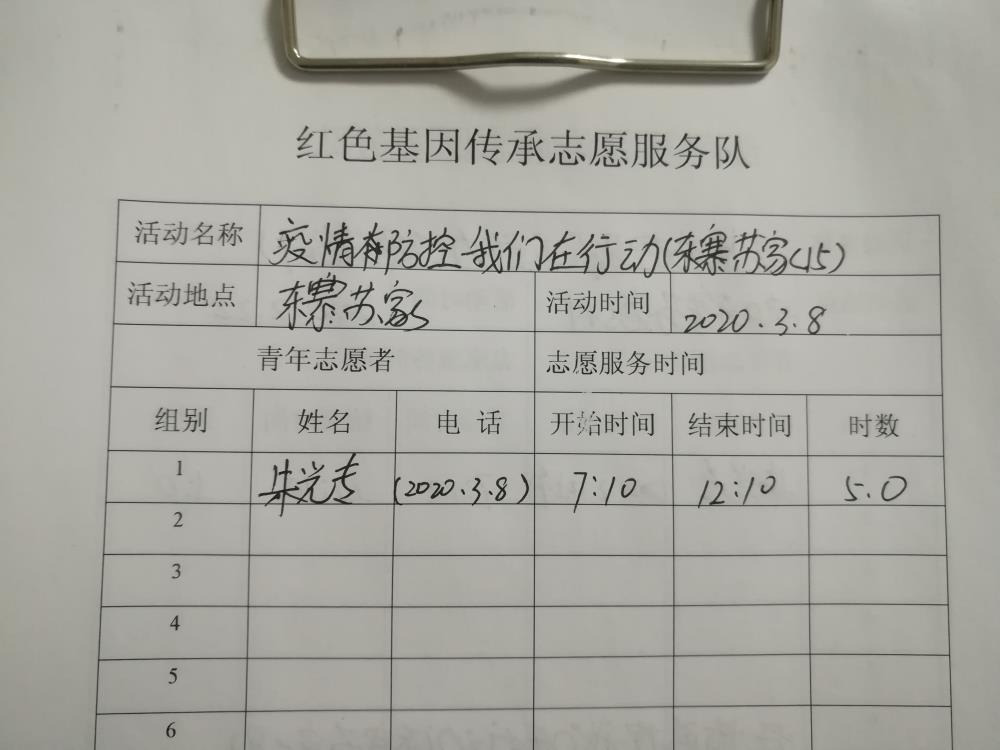 红色基因传承志愿服务队
活动名称 疫情防控 我们在行动(东寨苏家(15)
活动地点 东寨苏家 活动时间 2020.3.8
青年志愿者 志愿服务时间
组别 姓名 电话 开始时间 结束时间 时数
1 朱光专 (2020.3.8) 7:10 12:10 5.0
2
3
4
5
6